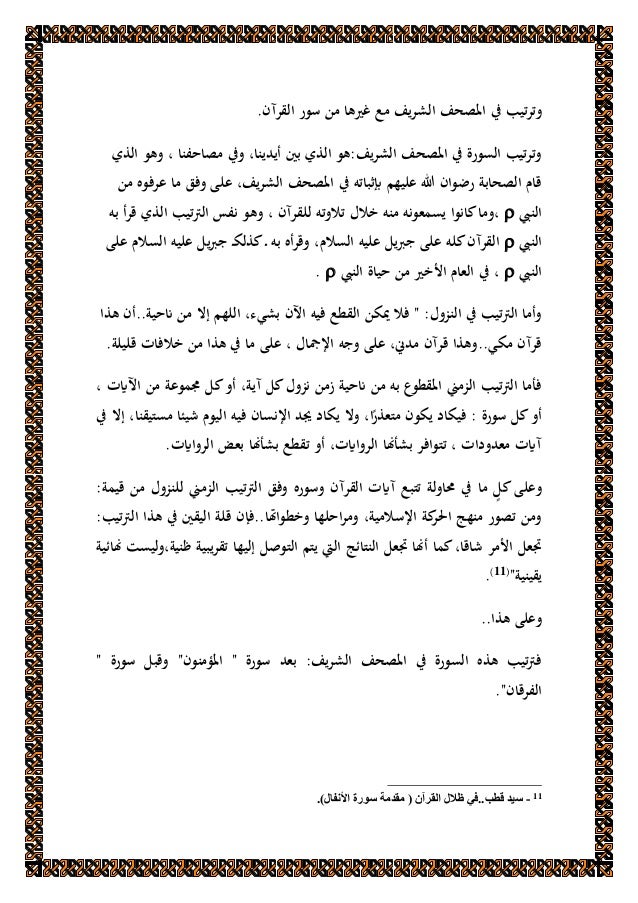 وترتيب في المصحف الشريف مع غيرها من سور القرآن.
وترتيب السورة في المصحف الشريف:هو الذي بين أيدينا، وفي مصاحفنا ، وهو الذي
قام الصحابة رضوان الله عليهم بإثباته في المصحف الشريف، على وفق ما عرفوه من
النبي ρ ،وما كانوا يسمعونه منه خلال تلاوته للقرآن ، وهو نفس الترتيب الذي قرأ به
النبي ρ القرآن كله على جبريل عليه السلام، وقرأه به . كذلك جبريل عليه السلام على
النبي ρ ، في العام الأخير من حياة النبي ρ .
وأما الترتيب في النزول: " فلا يمكن القطع فيه الآن بشيء، اللهم إلا من ناحية..أن هذا
قرآن مكي..وهذا قرآن مدني، على وجه الإجمال ، على ما في هذا من خلافات قليلة.
فأما الترتيب الزمني المقطوع به من ناحية زمن نزول كل آية، أو كل مجموعة من الآيات ،
أو كل سورة : فيكاد يكون متعذرًا، ولا يكاد يجد الإنسان فيه اليوم شيئا مستيقنا، إلا في
آيات معدودات ، تتوافر بشأنها الروايات، أو تقطع بشأنها بعض الروايات.
وعلى كلٍ ما في محاولة تتبع آيات القرآن وسوره وفق الترتيب الزمني للنزول من قيمة:
ومن تصور منهج الحركة الإسلامية، ومراحلها وخطواتها..فإن قلة اليقين في هذا الترتيب:
تجعل الأمر شاقا، كما أنها تجعل النتائج التي يتم التوصل إليها تقريبية ظنية،وليست نهائية
يقينية"(11).
وعلى هذا..
فترتيب هذه السورة في المصحف الشريف: بعد سورة " المؤمنون" وقبل سورة "
الفرقان".
11 - سيد قطب..في ظلال القرآن ( مقدمة سورة الأنفال).